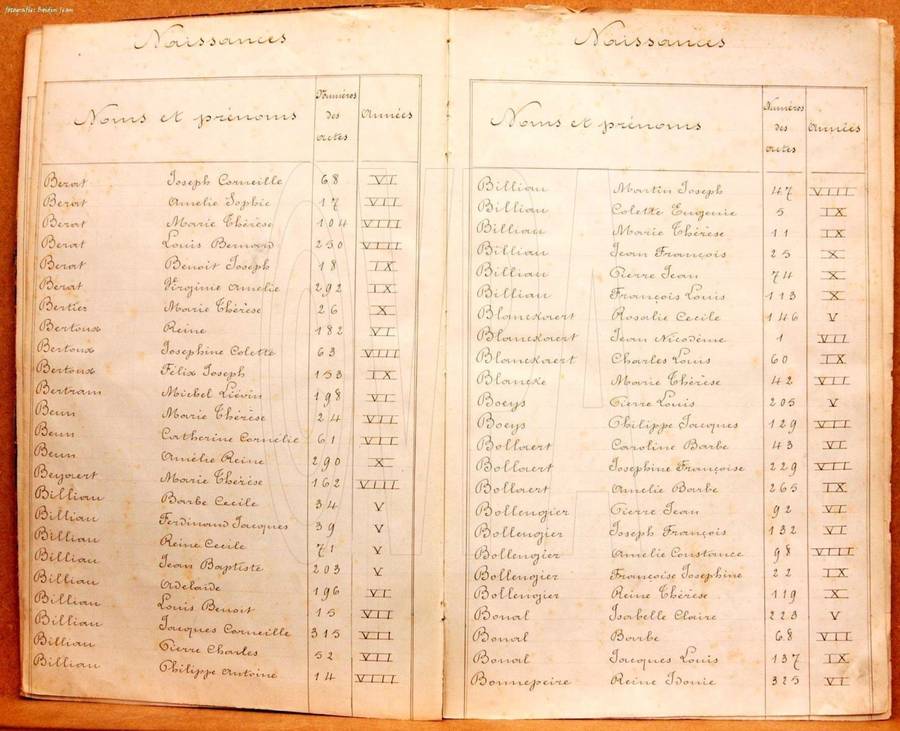 fotografie: Beidin Jean
Naissances
Noms et prénoms Numéros des actes Années
Berat Joseph Corneille 68 VI
Berat Amelie Sophie 17 VII
Berat Marie Thérèse 104 VIII
Berat Louis Bernard 250 VIII
Berat Benoit Joseph 18 IX
Berat Virginie Amelie 292 IX
Bertier Marie Thérèse 26 X
Bertoux Reine 182 VI
Bertoux Josephine Colette 63 VIII
Bertoux Félix Joseph 153 IX
Bertram Michel Liévin 198 VI
Beun Marie Thérèse 24 VII
Beun Catherine Cornélie 61 VII
Beun Amélie Reine 290 X
Beyaert Marie Thérèse 162 VIII
Billiau Barbe Cecile 34 V
Billiau Ferdinand Jacques 39 V
Billiau Reine Cecile 71 V
Billiau Jean Baptiste 203 V
Billiau Adelaïde 196 VI
Billiau Louis Benoit 15 VII
Billiau Jacques Corneille 315 VII
Billiau Pierre Charles 52 VII
Billiau Philippe Antoine 14 VIII
Naissances
Noms et prénoms Numéros des actes Années
Billiau Martin Joseph 47 VIII
Billiau Colette Eugenie 5 IX
Billiau Marie Thérèse 11 IX
Billiau Jean François 25 X
Billiau Pierre Jean 74 X
Billiau François Louis 113 X
Blanckaert Rosalie Cecile 146 V
Blanckaert Jean Nicodème 1 VII
Blanckaert Charles Louis 60 IX
Blancke Marie Thérèse 42 VII
Boeys Pierre Louis 205 V
Boeys Philippe Jacques 129 VII
Bollaert Caroline Barbe 43 VI
Bollaert Josephine Françoise 229 VII
Bollaert Amelie Barbe 265 IX
Bollengier Pierre Jean 92 VI
Bollengier Joseph François 132 VI
Bollengier Amelie Constance 98 VIII
Bollengier Françoise Josephine 22 IX
Bollengier Reine Thérèse 119 X
Bonal Isabelle Claire 223 V
Bonal Barbe 68 VII
Bonal Jacques Louis 137 IX
Bonnepeire Reine Idonie 325 VI